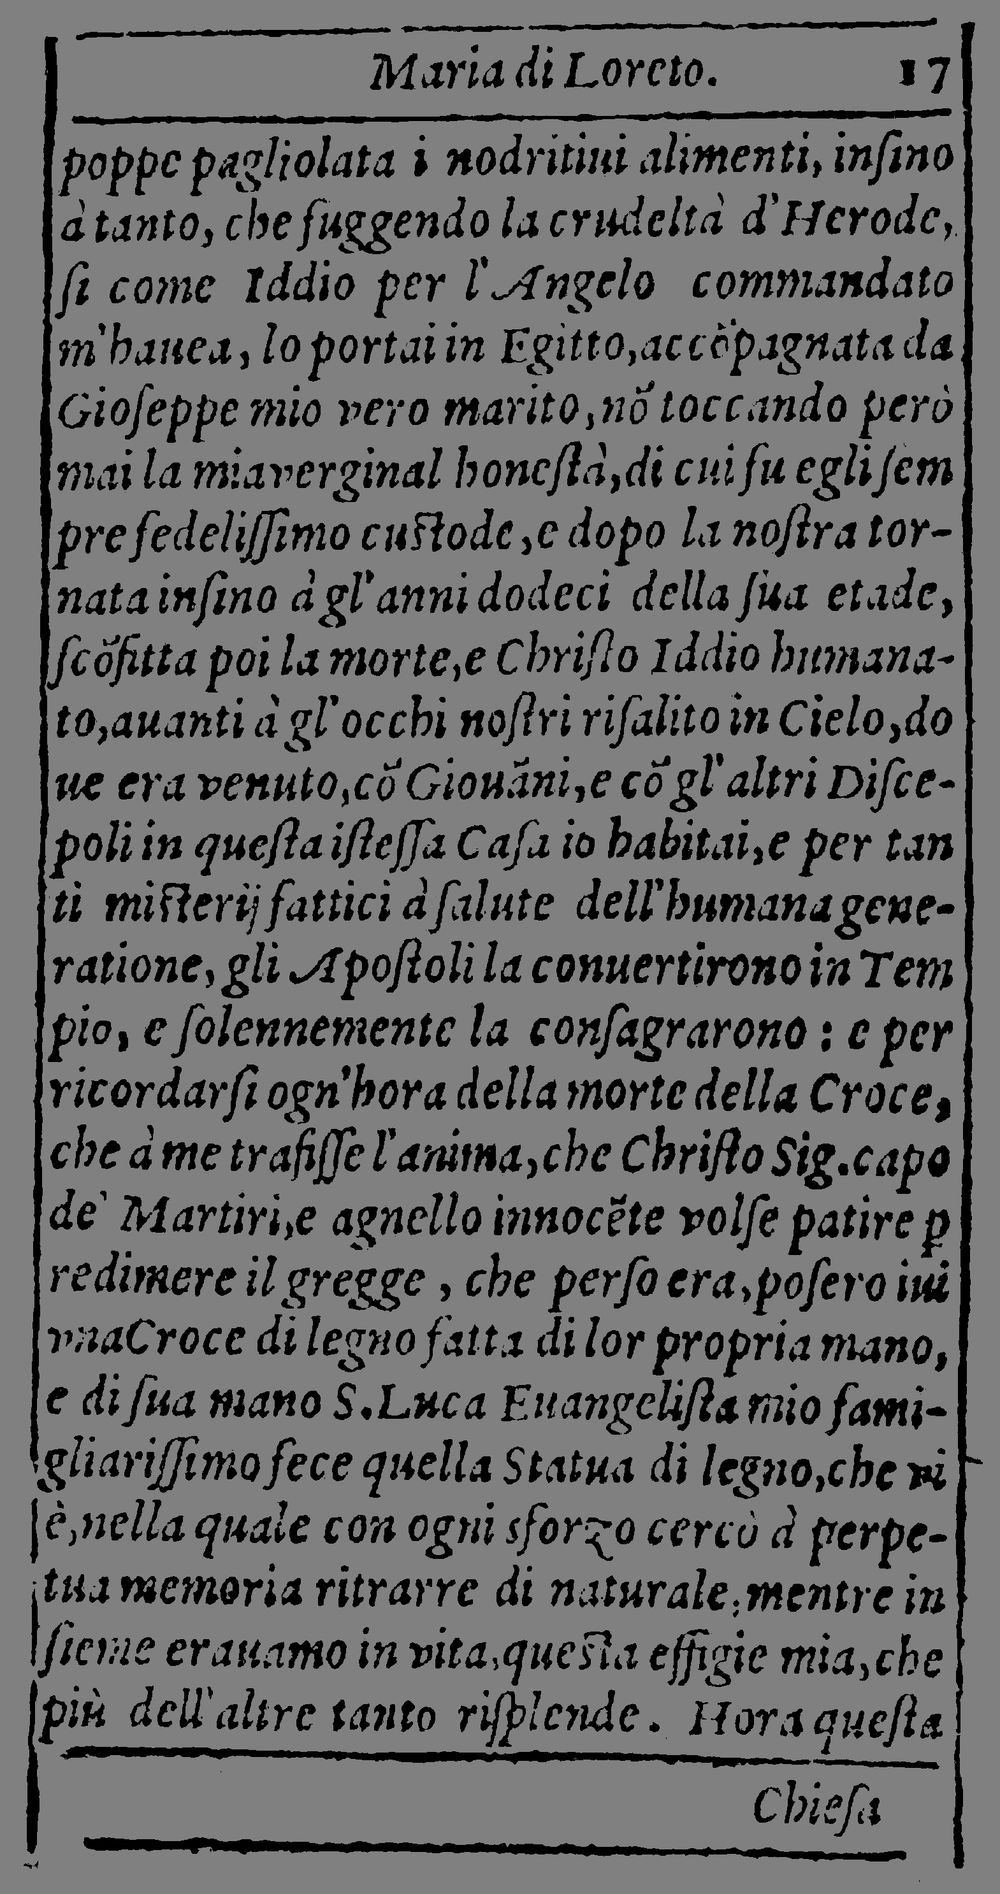 Maria di Loreto. 17
poppe pagliolata i nodritiui alimenti, inſino
à tanto, che fuggendo la crudeltà d'Herode,
ſi come Iddio per l'Angelo commandato
m'hauea, lo portai in Egitto, accõpagnata da
Gioſeppe mio vero marito, nõ toccando però
mai la mia verginal honeſtà, di cui fu egli ſem
pre fedeliſſimo cuſtode, e dopo la noſtra tor-
nata inſino à gl'anni dodeci della ſua etade,
ſcõfitta poi la morte, e Chriſto Iddio humana-
to, auanti à gl'occhi noſtri riſalito in Cielo, do
ue era venuto, cõ Giouãni, e cõ gl'altri Diſce-
poli in queſta iſteſſa Caſa io habitai, e per tan
ti miſterij fattici à ſalute dell'humana gene-
ratione, gli Apoſtoli la conuertirono in Tem
pio, e ſolennemente la conſagrarono : e per
ricordarſi ogn'hora della morte della Croce,
che à me trafiſſe l'anima, che Chriſto Sig. capo
de' Martiri, e agnello innocẽte volſe patire ꝑ
redimere il gregge , che perſo era, poſero iui
vna Croce di legno fatta di lor propria mano,
e di ſua mano S. Luca Euangeliſta mio fami-
gliariſſimo fece quella Statua di legno, che vi
è, nella quale con ogni sforzo cercò à perpe-
tua memoria ritrarre di naturale, mentre in
ſieme erauamo in vita, queſta effigie mia, che
più dell'altre tanto riſplende. Hora queſta
Chieſa